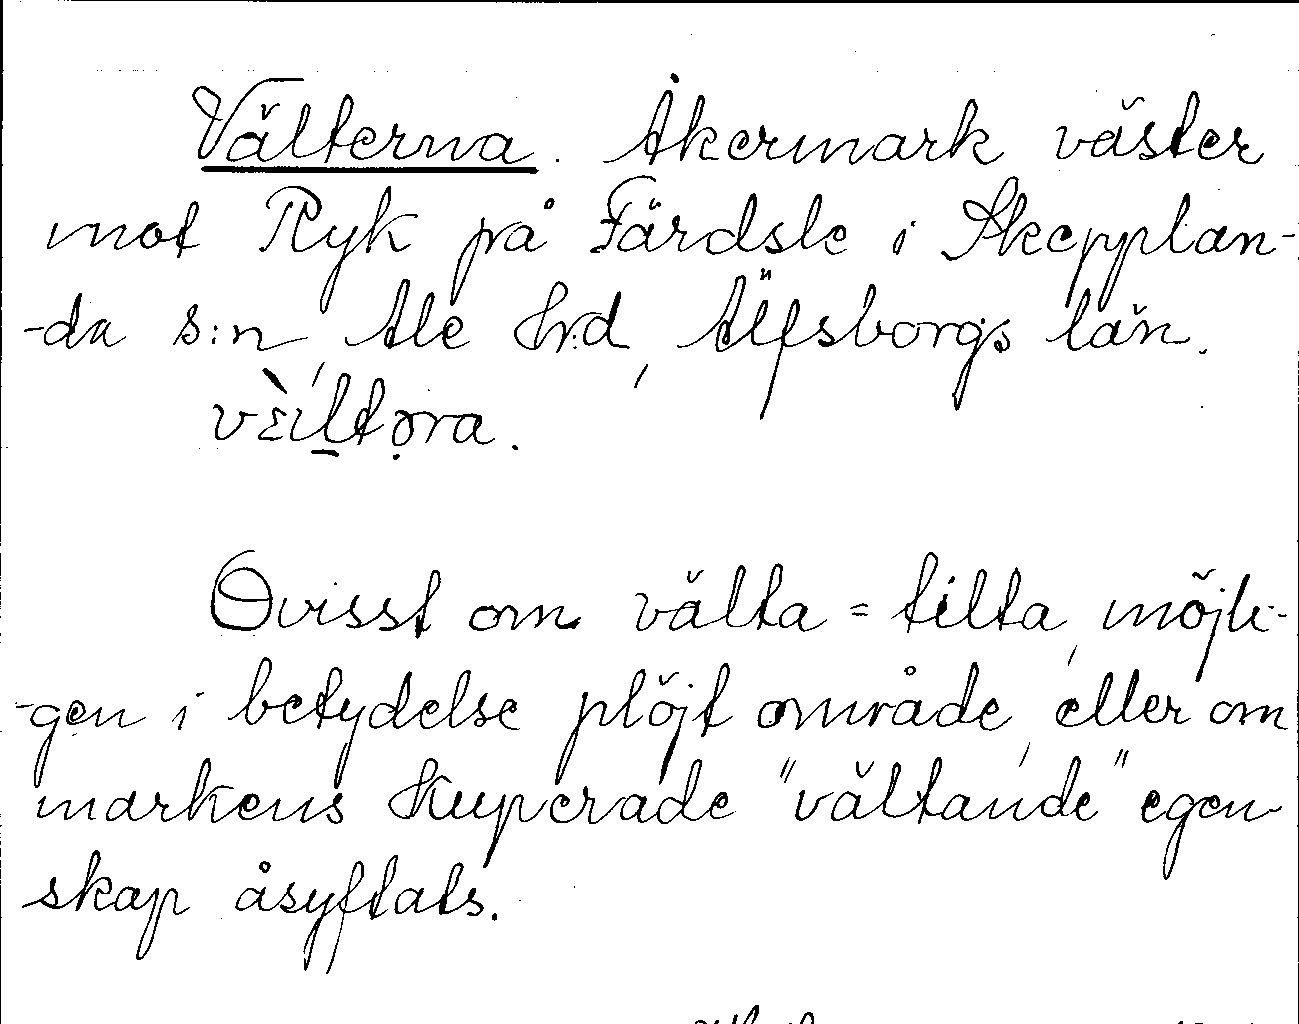 Välterna. Åkermark väster
mot Ryk på Färdsle i Skepplan-
-da s:n, Ale Hrd, Älfsborgs län.
vèiltəra.
Ovisst om välta = tilta, möjli-
-gen i betydelse plöjt område, eller om
markens kuperade "vältande" egen-
skap åsyftats.